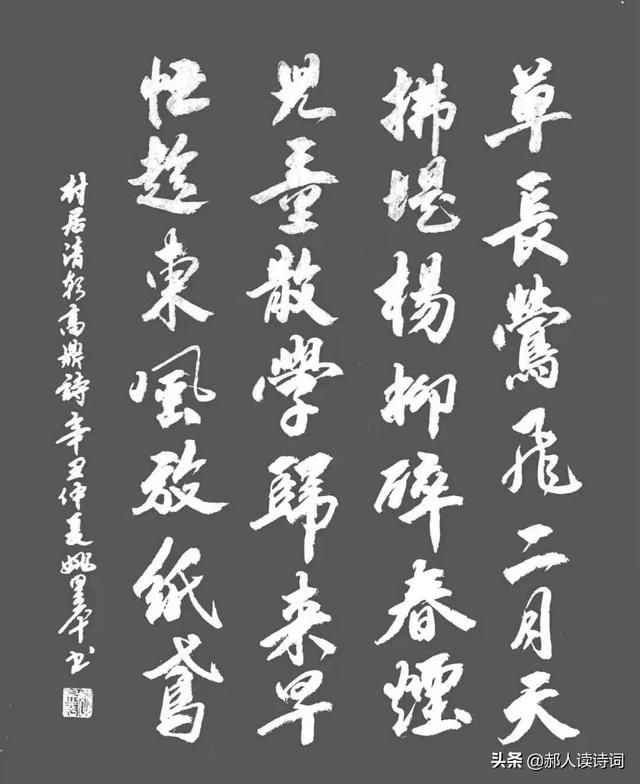 草長鶯飛二月天
拂堤楊柳碎春煙
児童散學歸来早
忙趁東風放紙鳶
村居清彭高鼎詩辛丑仲夏姚景平书
头条@郝人读诗词